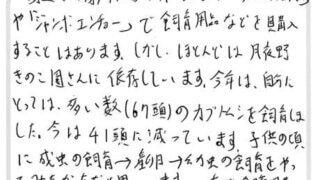 や「ジャンボエンチョー」で飼育用品などを購入
することはあります。しかし、ほとんどは月夜野
きのこ園さんに依存しています。今年は、自分に
とっては、多い数(67頭)のカブトムシを飼育しま
した。今は41頭に減っています。子供の頃
に成虫の飼育→産卵→幼虫の飼育をやっ